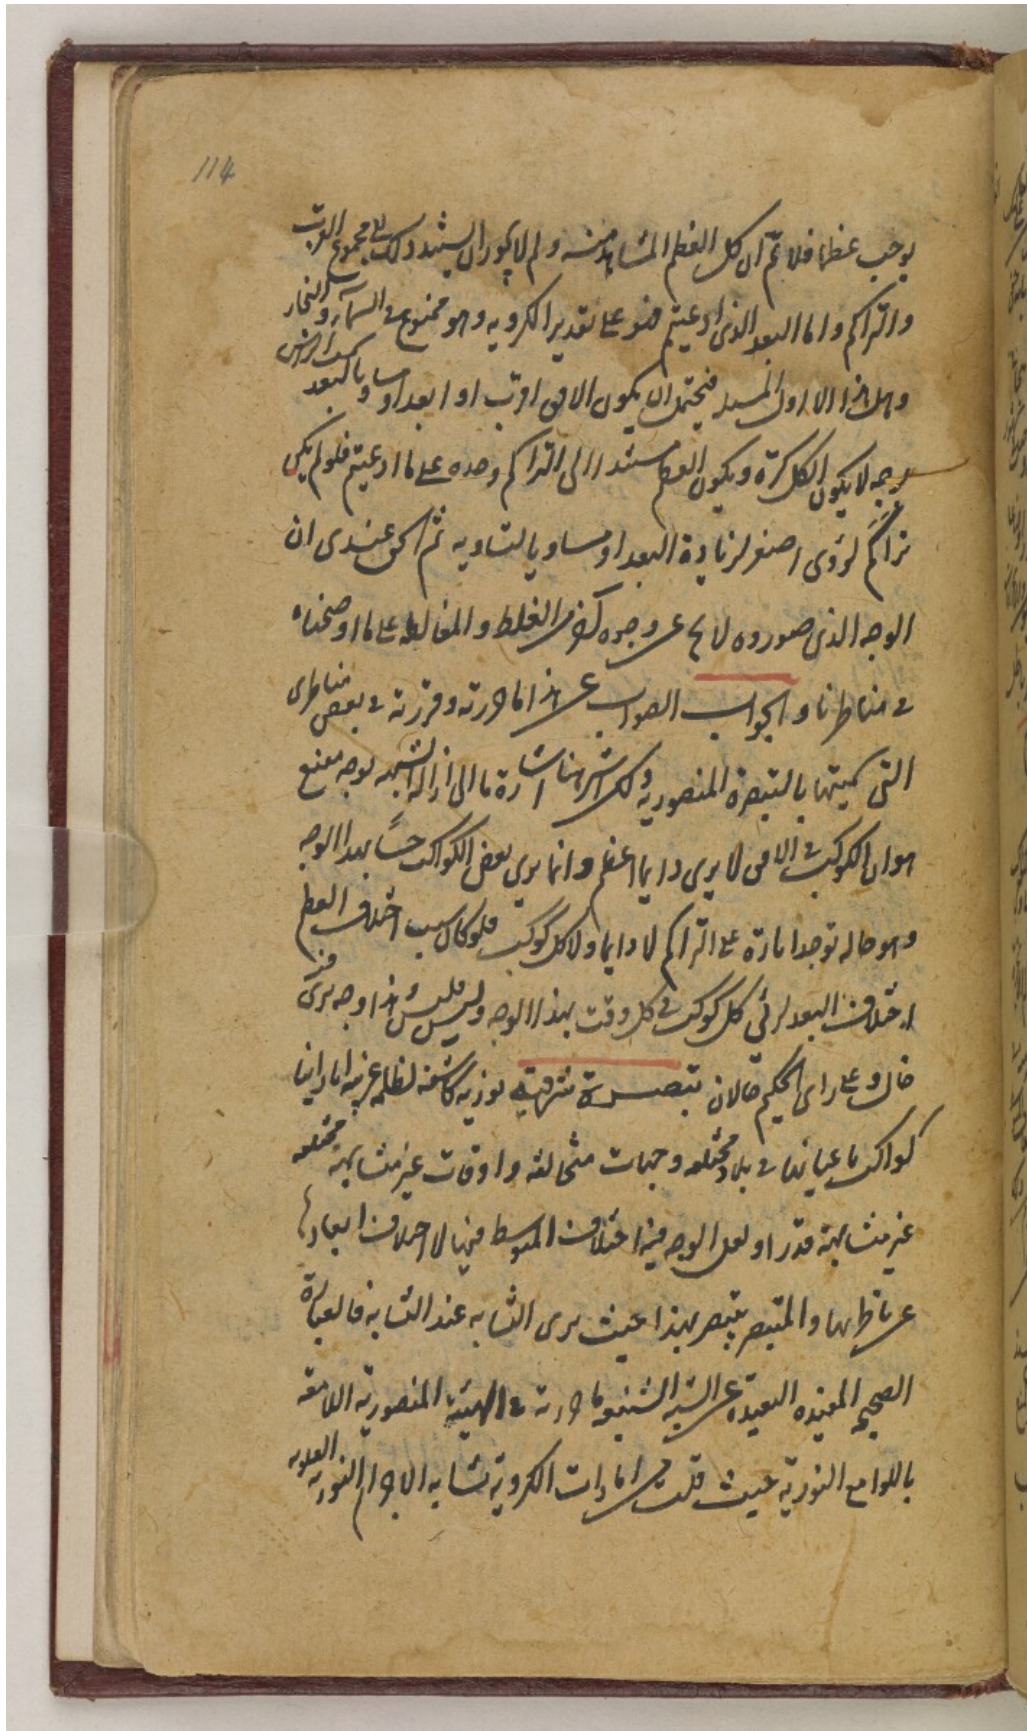 114
يوجب عظما فلا نم ان كل العظم المشاهد منه ولم لا يجوز ان يستند ذلك الى مجموع القرب
والتراكم واما البعد الذى ادعيتم فهو على تقدير الكروية وهو ممنوع فى السماء والبخار
وهل هذا الا اول المسئلة فيحتمل ان يكون الافق اقرب او ابعد او مساويا كبعد سمت الراس
بوجه لا يكون الكل كرة ويكون العظم مستندا الى التراكم وحده على ما ادعيتم فلو لم يكن
تراكم لرؤى اصغر لزيادة البعد او مساويا لتساويه ثم الحق عندى ان
الوجه الذى صوروه لا يخ عن وجوه كثيرة من الغلط والمغالطه على ما اوضحناه
فى مناظرنا والجواب الصواب عن هذا ما حررته وقررته فى بعض مناظرى
التى سميتها بالتبصرة المنصورية ولكن نشير هنا اشارة ما الى ازالة الشبهه بوجه مقنع
هو ان الكوكب فى الافق لا يرى دايما اعظم وانما يرى بعض الكواكب حسا بهذا الوجه
وهو حاله توجد امارة على التراكم لا دايما ولا كل كوكب فلو كان سبب اختلاف العظم
اختلاف البعد لرئى كل كوكب فى كل وقت بهذا الوجه وليس فليس وهذا وجه برى
فان وعلى راى الحكيم قالان تبصرة شرقية نورية كاشفة لظلمة غريبة انا راينا
كواكب باعيانها فى بلاد مختلفه وجهات متخالفه واوقات غير متشابهة مختلفه
غير متشابهة قدرا ولعل الوجه فيه اختلاف المتوسط فيها لا اختلاف ابعادها
عن ناظريها والمتبصر يتبصر بهذا حيث يرى التشابه عند التشابه فالعبارة
الصحيحه المفيده البعيدة عن الشبه الشنيع ما حررته فى الهيئة المنصورية اللامعة
باللوامع النورية حيث قلت من امارات الكروية تشابه الاجرام النورية العلوية